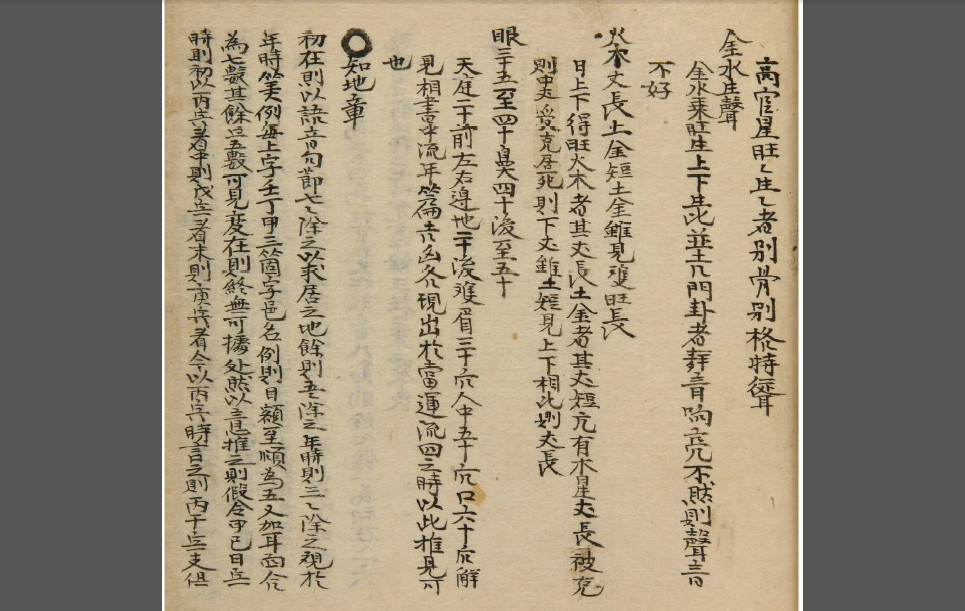 高官星旺〻生〻者别骨别格特聳
金水生聲
金水乗旺生上下生比並土几門卦者鞛音响亮亮不然則聲音
不好
火木丈長土金短土金雖見難旺長
日上下得旺火木者其丈長土金者其丈短亢有木星丈長被克
則中夭受克居死則下丈雖土短見上下相比则丈長
眼三十五至四十鼻四十後至五十
天庭二十前左右邉地二十後难眉三十宍人中五十宍口六十宍解
見相書中流年篇吉凶各現出於當運流四之時以此推見可
也
知地章
初在則以諺音句節七〻除之以求居之地餘則五除之年時則三〻除之視於
年時笑例無上字壬丁甲三箇字邑名例則日額至順為五又加耳面合
為七數其餘並五數可見度在則終無可據处然以意推之則假令甲已日兵
時則初以丙兵着中則戊兵着末則庚兵着今以丙兵時言之則丙干兵支俱